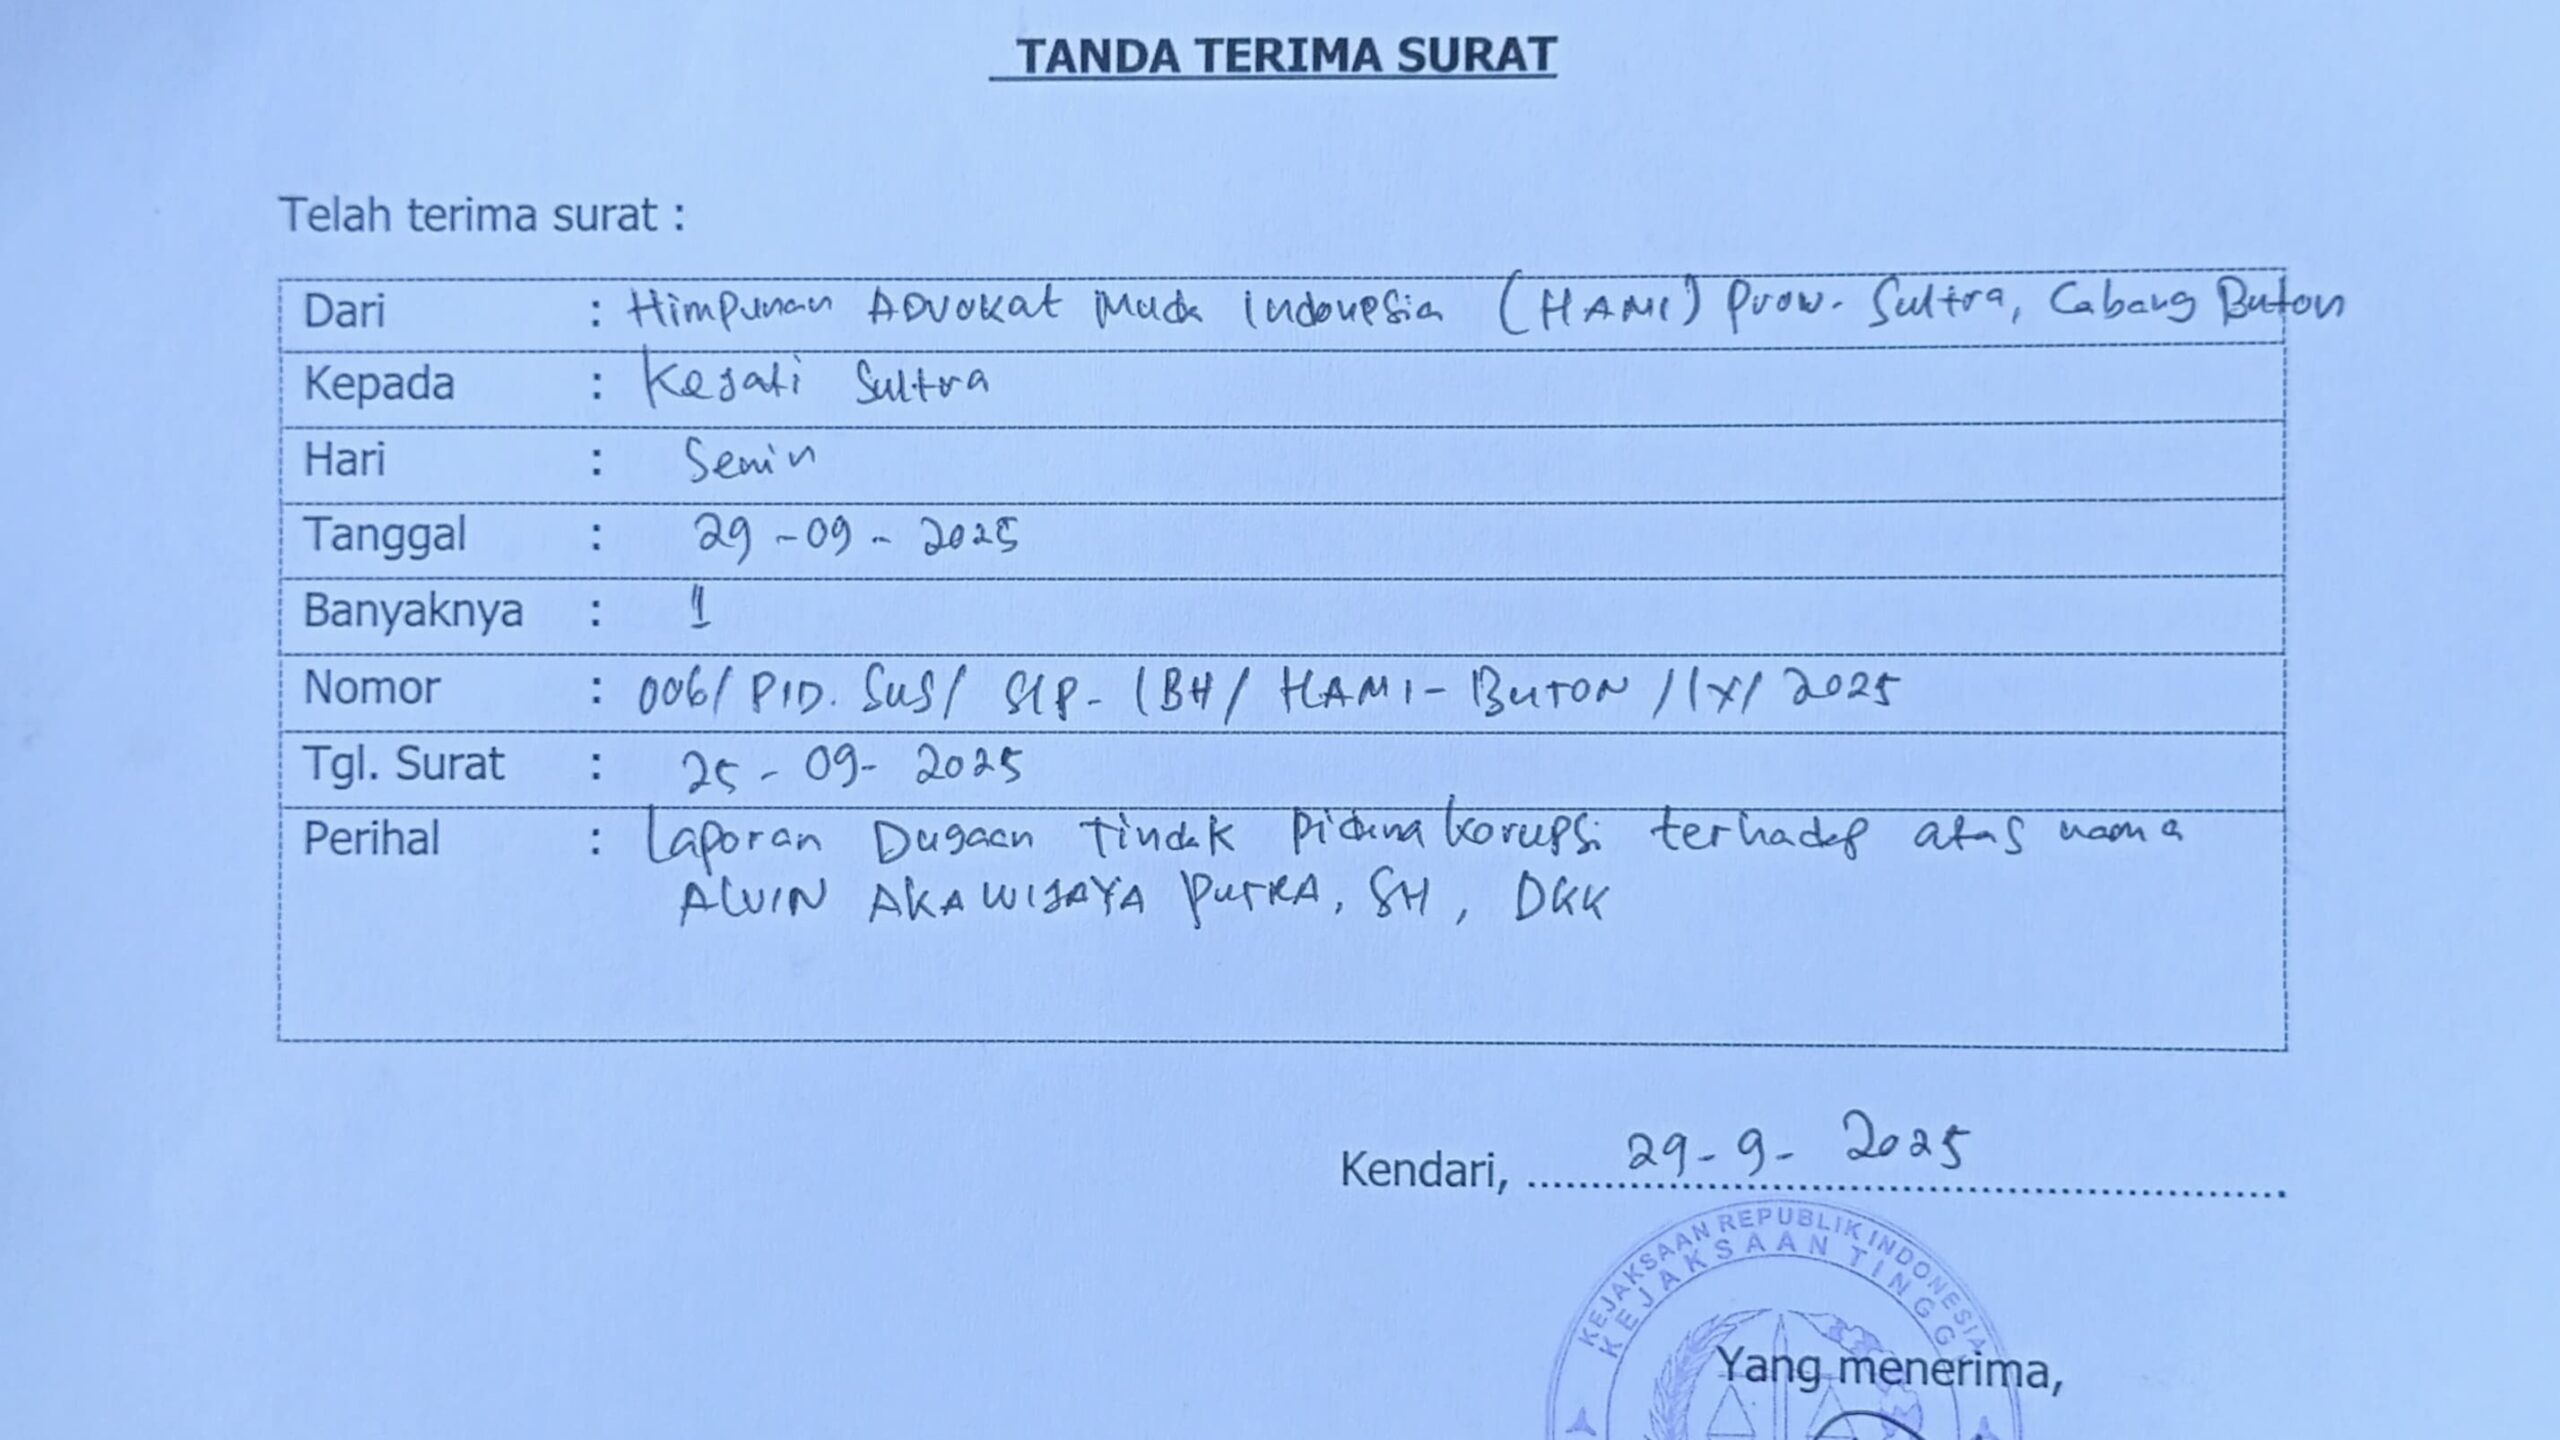 TANDA TERIMA SURAT
Telah terima surat :
Dari : Himpunan Advokat Muda Indonesia (HAMI) Prov. Sultra, Cabang Buton
Kepada : Kejati Sultra
Hari : Senin
Tanggal : 29-09-2025
Banyaknya : 1
Nomor : 006/ PID. SUS/ SIP-LBH/ HAMI-BUTON /IX/ 2025
Tgl. Surat : 25-09-2025
Perihal : Laporan Dugaan Tindak Pidana korupsi terhadap atas nama
ALVIN AKAWIJAYA PUTRA, SH, DKK
Kendari, 29-9-2025
KEJAKSAAN REPUBLIK INDONESIA
KEJAKSAAN TINGGI
Yang menerima,